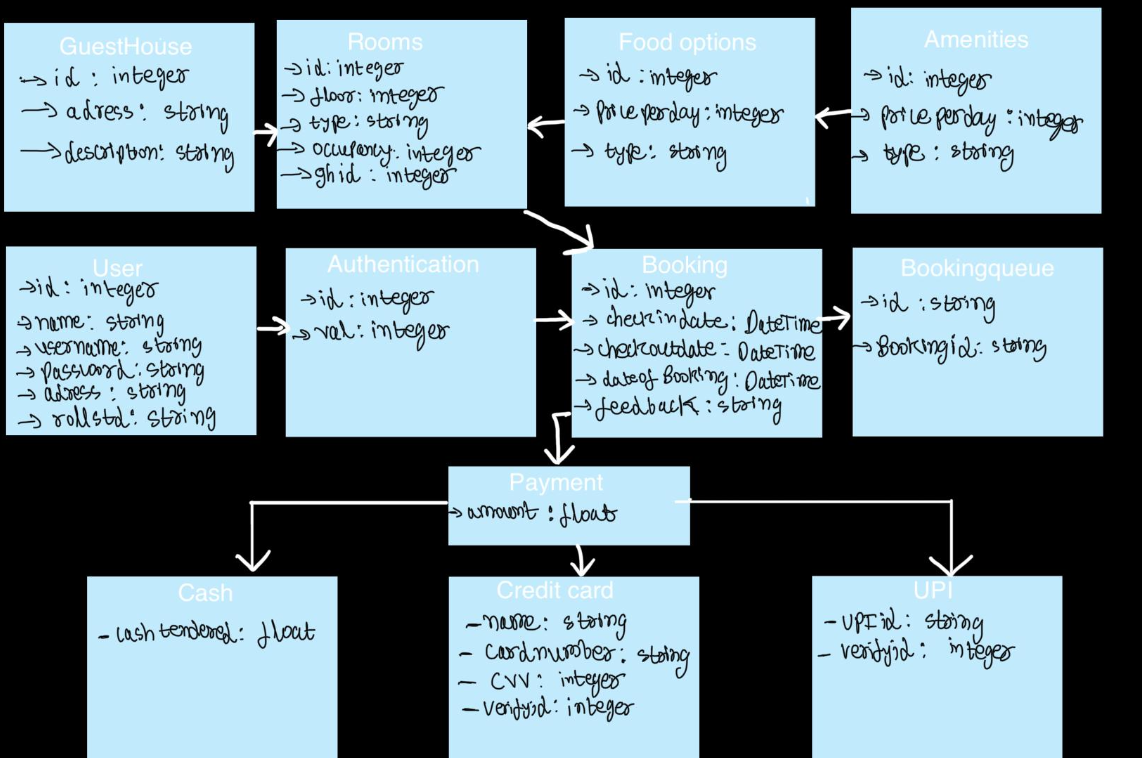 GuestHouse
→ id : integer
→ adress : string
→ description : string
Rooms
→ id: integer
→ floor: integer
→ type: string
→ occupancy: integer
→ ghid : integer
Food options
→ id : integer
→ price perday : integer
→ type: string
Amenities
→ id: integer
→ price perday : integer
→ type : string
User
→ id: integer
→ name: string
→ username: string
→ password: string
→ adress : string
→ rollstd: string
Authentication
→ id: integer
→ val: integer
Booking
→ id: integer
→ checkindate: DateTime
→ checkoutdate: DateTime
→ dateof Booking: DateTime
→ feedback: string
Bookingqueue
→ id : string
→ Bookingid: string
Payment
→ amount : float
Cash
- cash tendered: float
Credit card
- name: string
- cardnumber: string
- CVV: integer
- verifyid: integer
UPI
- UPI id: string
- verifyid: integer